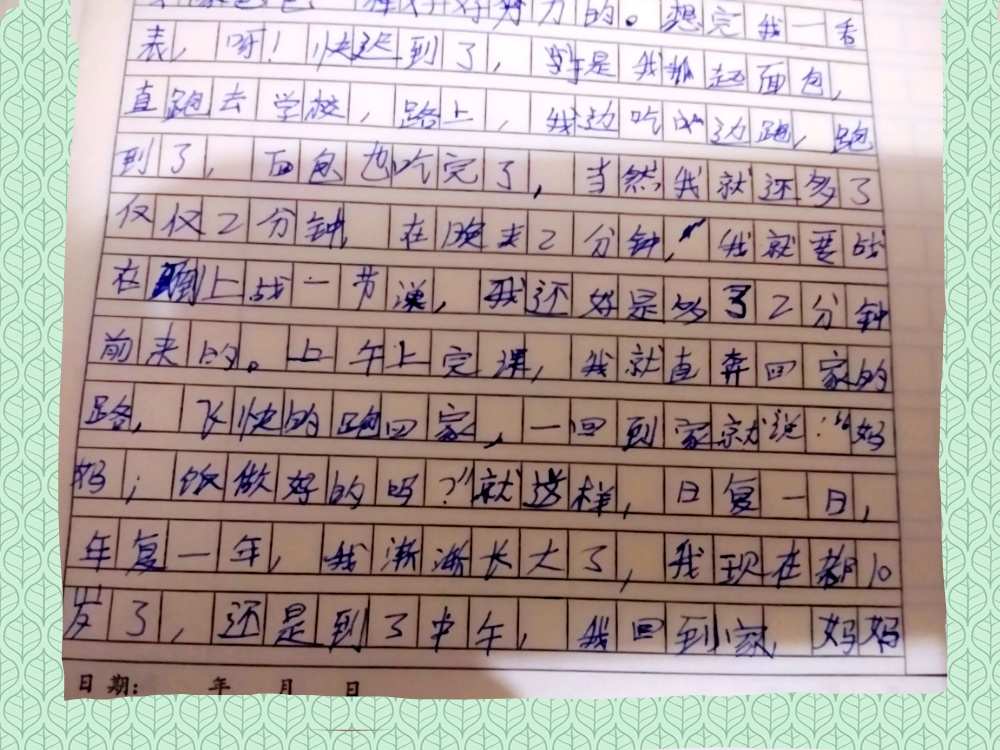 努力的。想完我一看
表，呀！快迟到了，于是我抓起面包，
直跑去学校，路上，我边吃边跑，跑
到了，面包也吃完了，当然我就还多了
仅仅2分钟，在晚来2分钟，我就要战
在上战一节课，我还好是多了2分钟
前来的。上午上完课，我就直奔回家的
路，飞快的跑回家，一回到家就说：“妈
妈；饭做好的吗？”就这样，日复一日，
年复一年，我渐渐长大了，我现在都10
岁了，还是到了中午，我回到家，妈妈
日期： 年 月 日